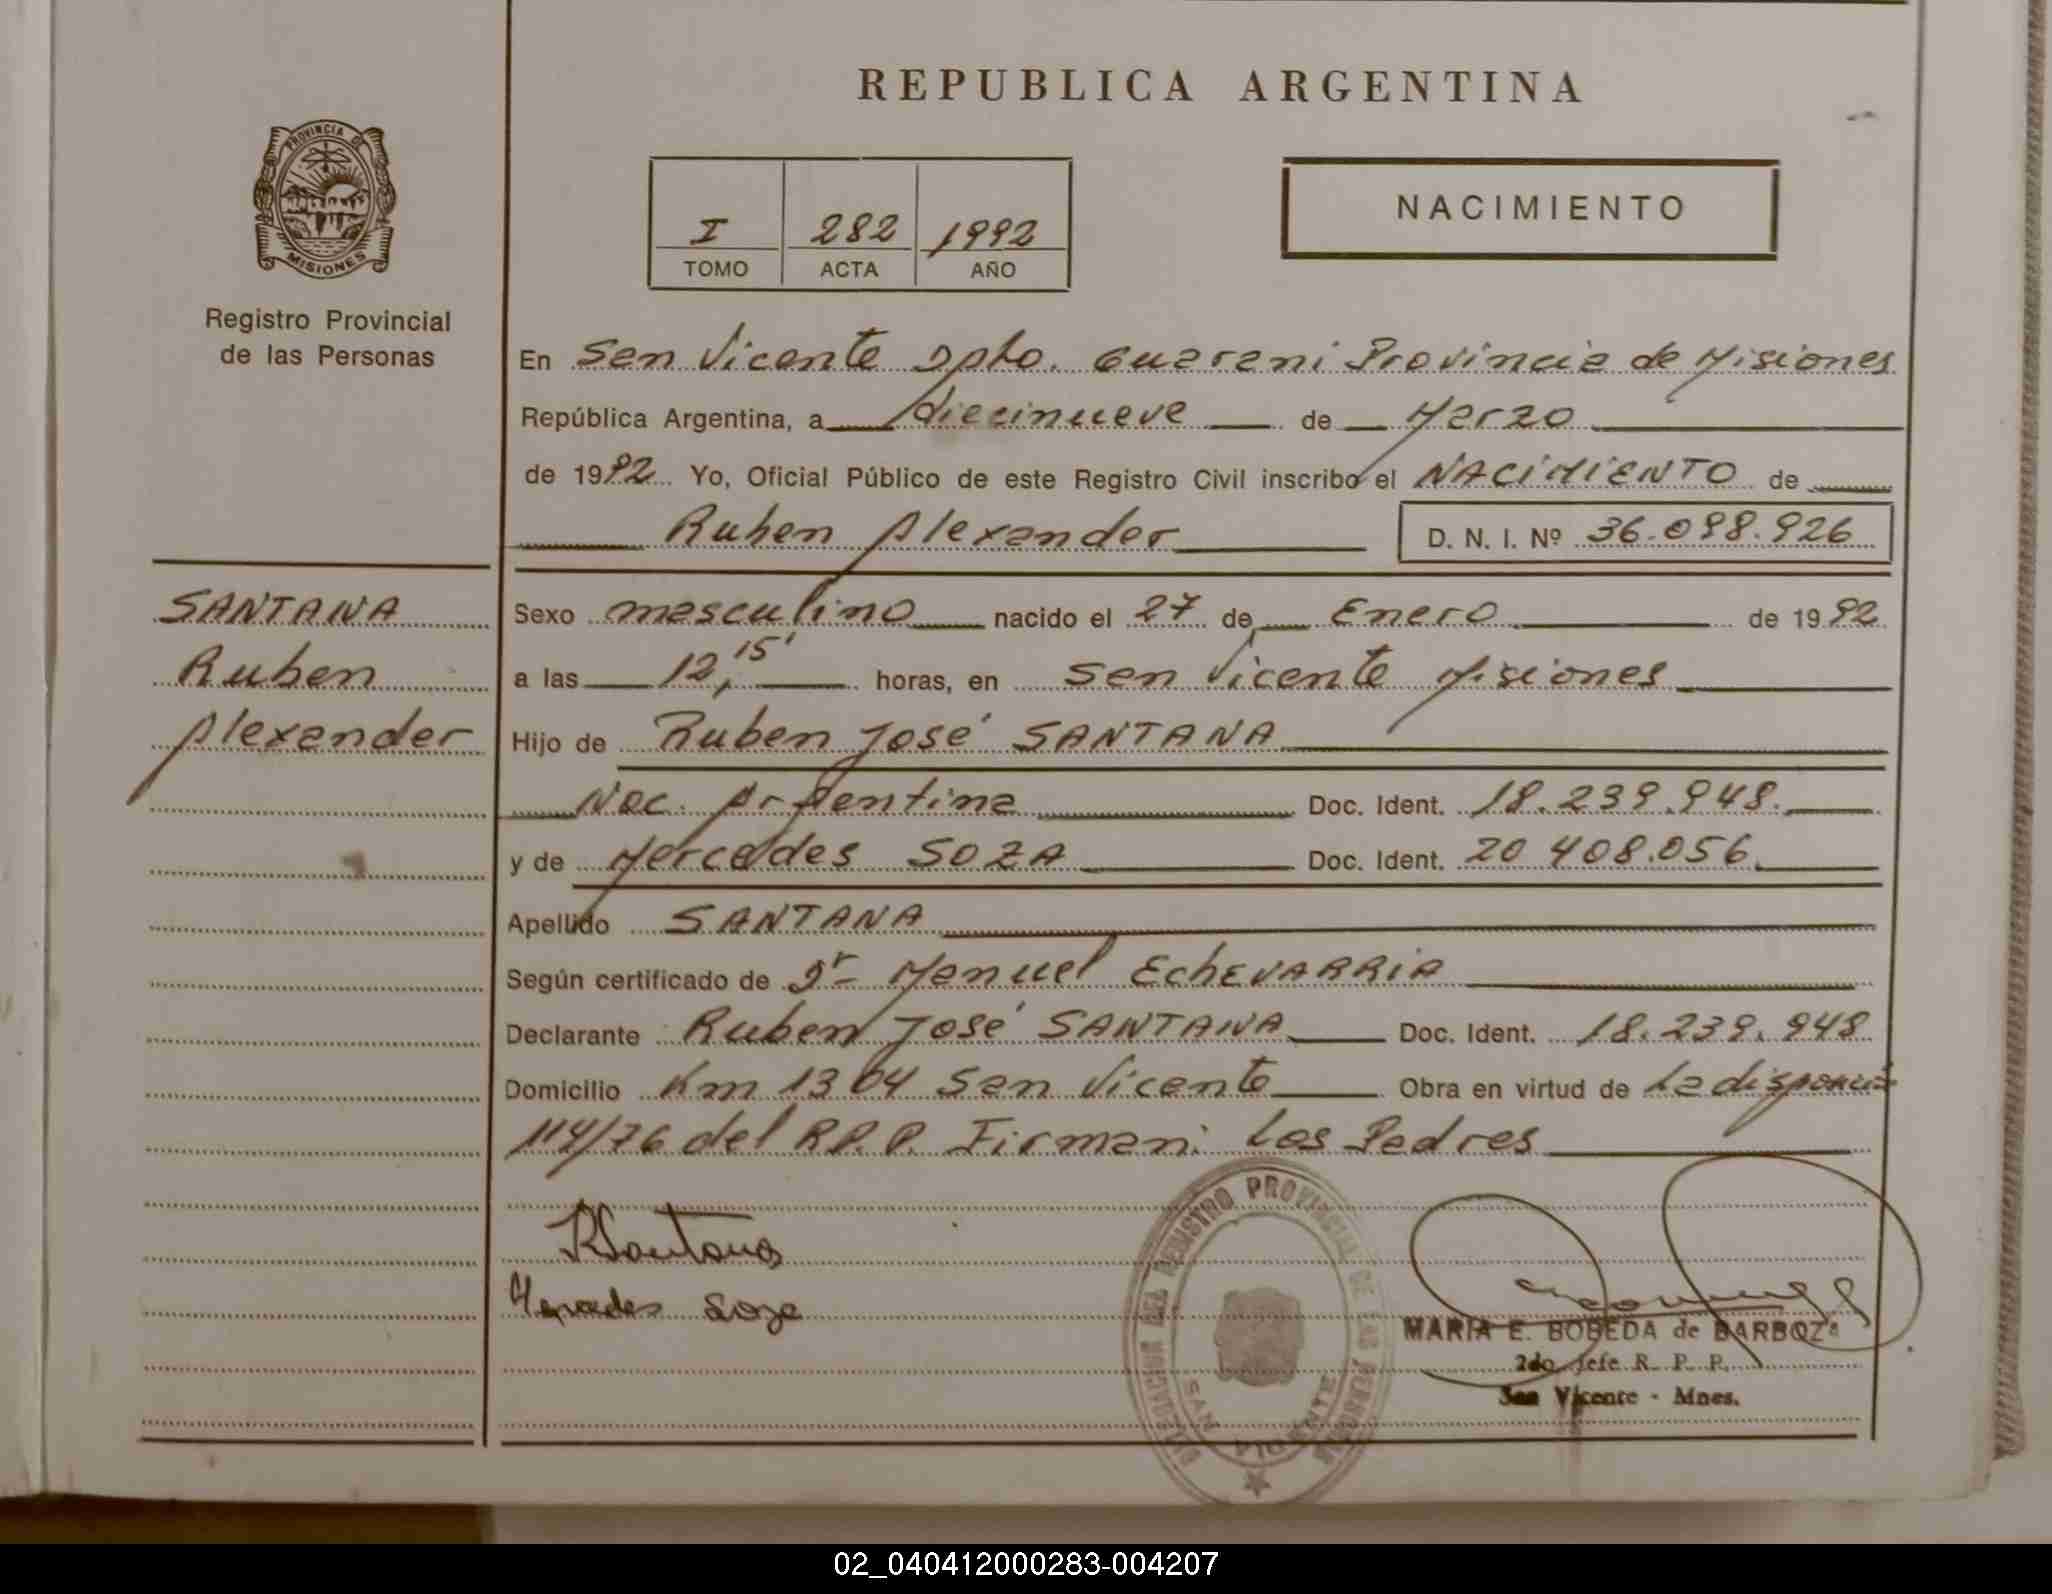 REPUBLICA ARGENTINA
PROVINCIA DE
MISIONES
Registro Provincial
de las Personas
I 282 1992
TOMO ACTA AÑO
NACIMIENTO
En San Vicente Dpto. Guarani Provincia de Misiones
República Argentina, a diecinueve de Marzo
de 1992 Yo, Oficial Público de este Registro Civil inscribo el NACIMIENTO de
Ruben Alexander D. N. I. Nº 36.098.926
SANTANA
Ruben
Alexander
Sexo masculino nacido el 27 de Enero de 1992
a las 12,15' horas, en San Vicente Misiones
Hijo de Ruben José SANTANA
Nac. Argentina Doc. Ident. 18.239.948.
y de Mercedes SOZA Doc. Ident. 20 408.056.
Apellido SANTANA
Según certificado de Dr Manuel EchEVARRIA
Declarante Ruben José SANTANA Doc. Ident. 18.239.948
Domicilio Km 1304 San Vicente Obra en virtud de La disposició
114/76 del R.P.P. Firman: Los Padres
RSantana
Mercedes Soza
REGISTRO PROVINCIAL DE LAS PERSONAS
SAN
MARIA E. BOBEDA de BARBOZA
2do Jefe R. P. P.
San Vicente - Mnes.
02_040412000283-004207